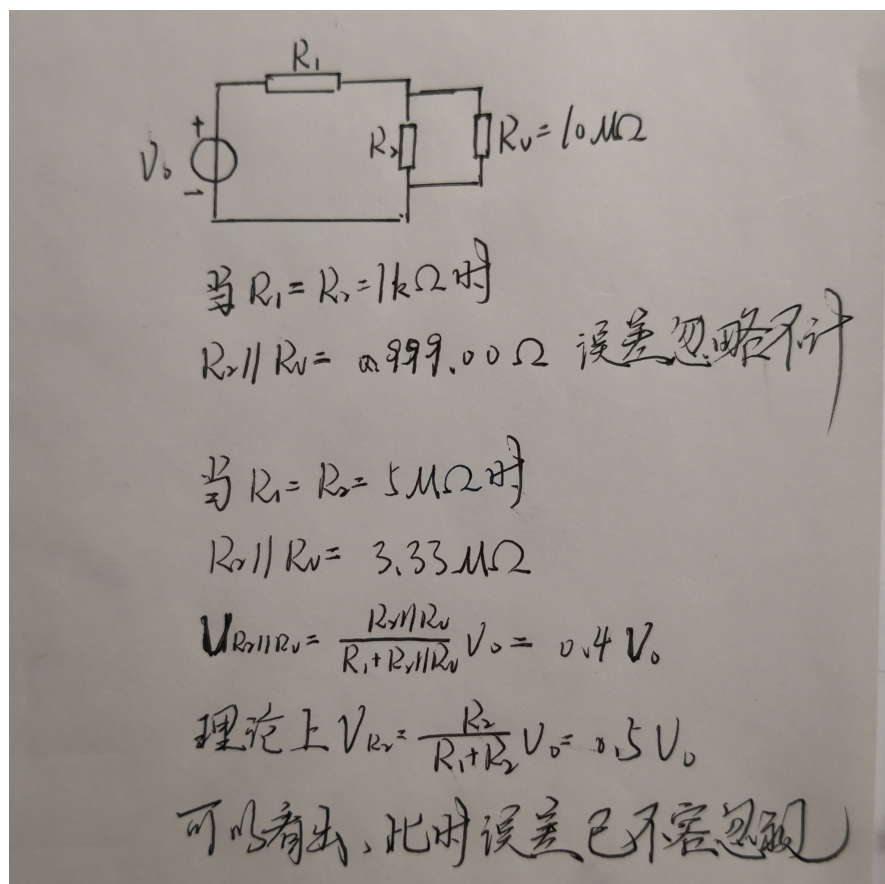 R₁
V₀ + - R₂ Rᵥ=10MΩ
当R₁=R₂=1kΩ时
R₂//Rᵥ= 999.00Ω 误差忽略不计
当R₁=R₂=5MΩ时
R₂//Rᵥ= 3.33MΩ
U_{R₂//Rᵥ}= \frac{R₂//Rᵥ}{R₁+R₂//Rᵥ} V₀= 0.4V₀
理论上V_{R₂}= \frac{R₂}{R₁+R₂} V₀= 0.5V₀
可以看出、此时误差已不容忽视